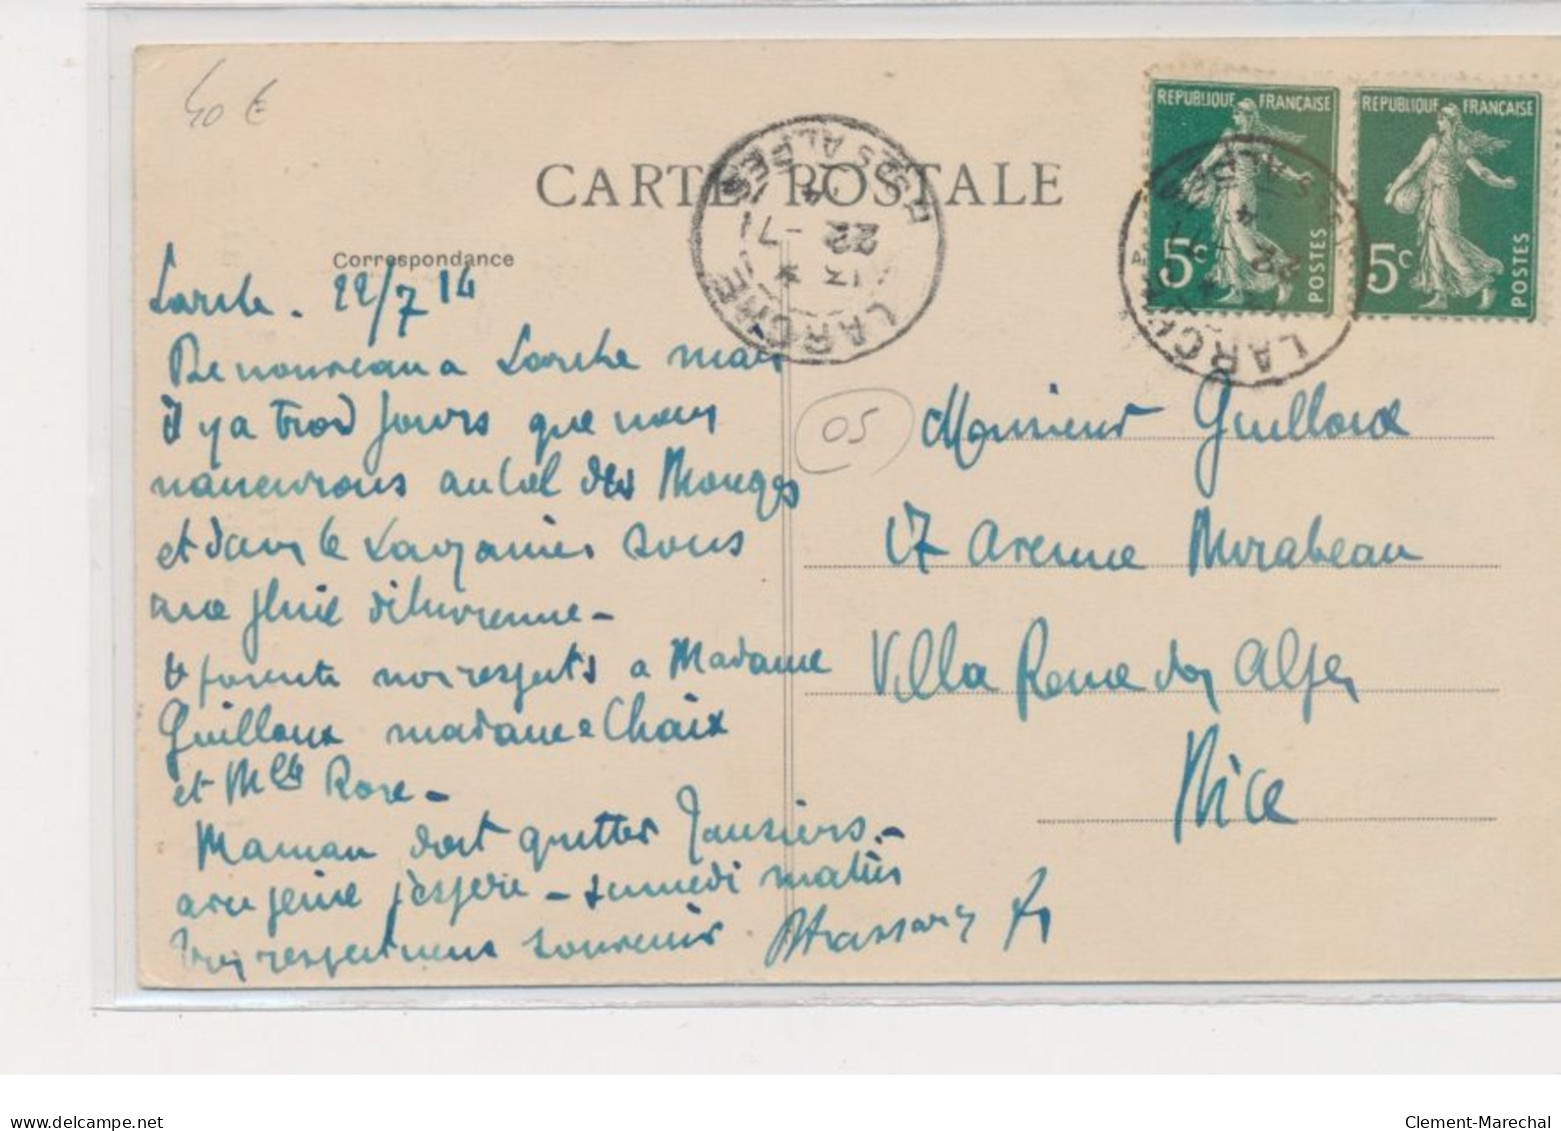 40 €
CARTE POSTALE
Correspondance
LARCHE
13 *
22 -7
14
BSES ALPES
REPUBLIQUE FRANÇAISE
5c
POSTES
REPUBLIQUE FRANÇAISE
5c
POSTES
LARCHE
22 -7
Larche. 22/7 14
De nouveau a Larche mais
il y a trois jours que nous
manœuvrons au col des Monges
et dans le Lauzanier sous
une pluie diluvienne -
presente nos respects a Madame
Guilloux madame Chaix
et Mlle Rose -
Maman doit quitter Jausiers -
avec peine j'espère - samedi matin
Très respectueux souvenir
05
Monsieur Guilloux
17 avenue Mirabeau
Villa Reine des Alpes
Nice
delcampe.net
Clement-Marechal